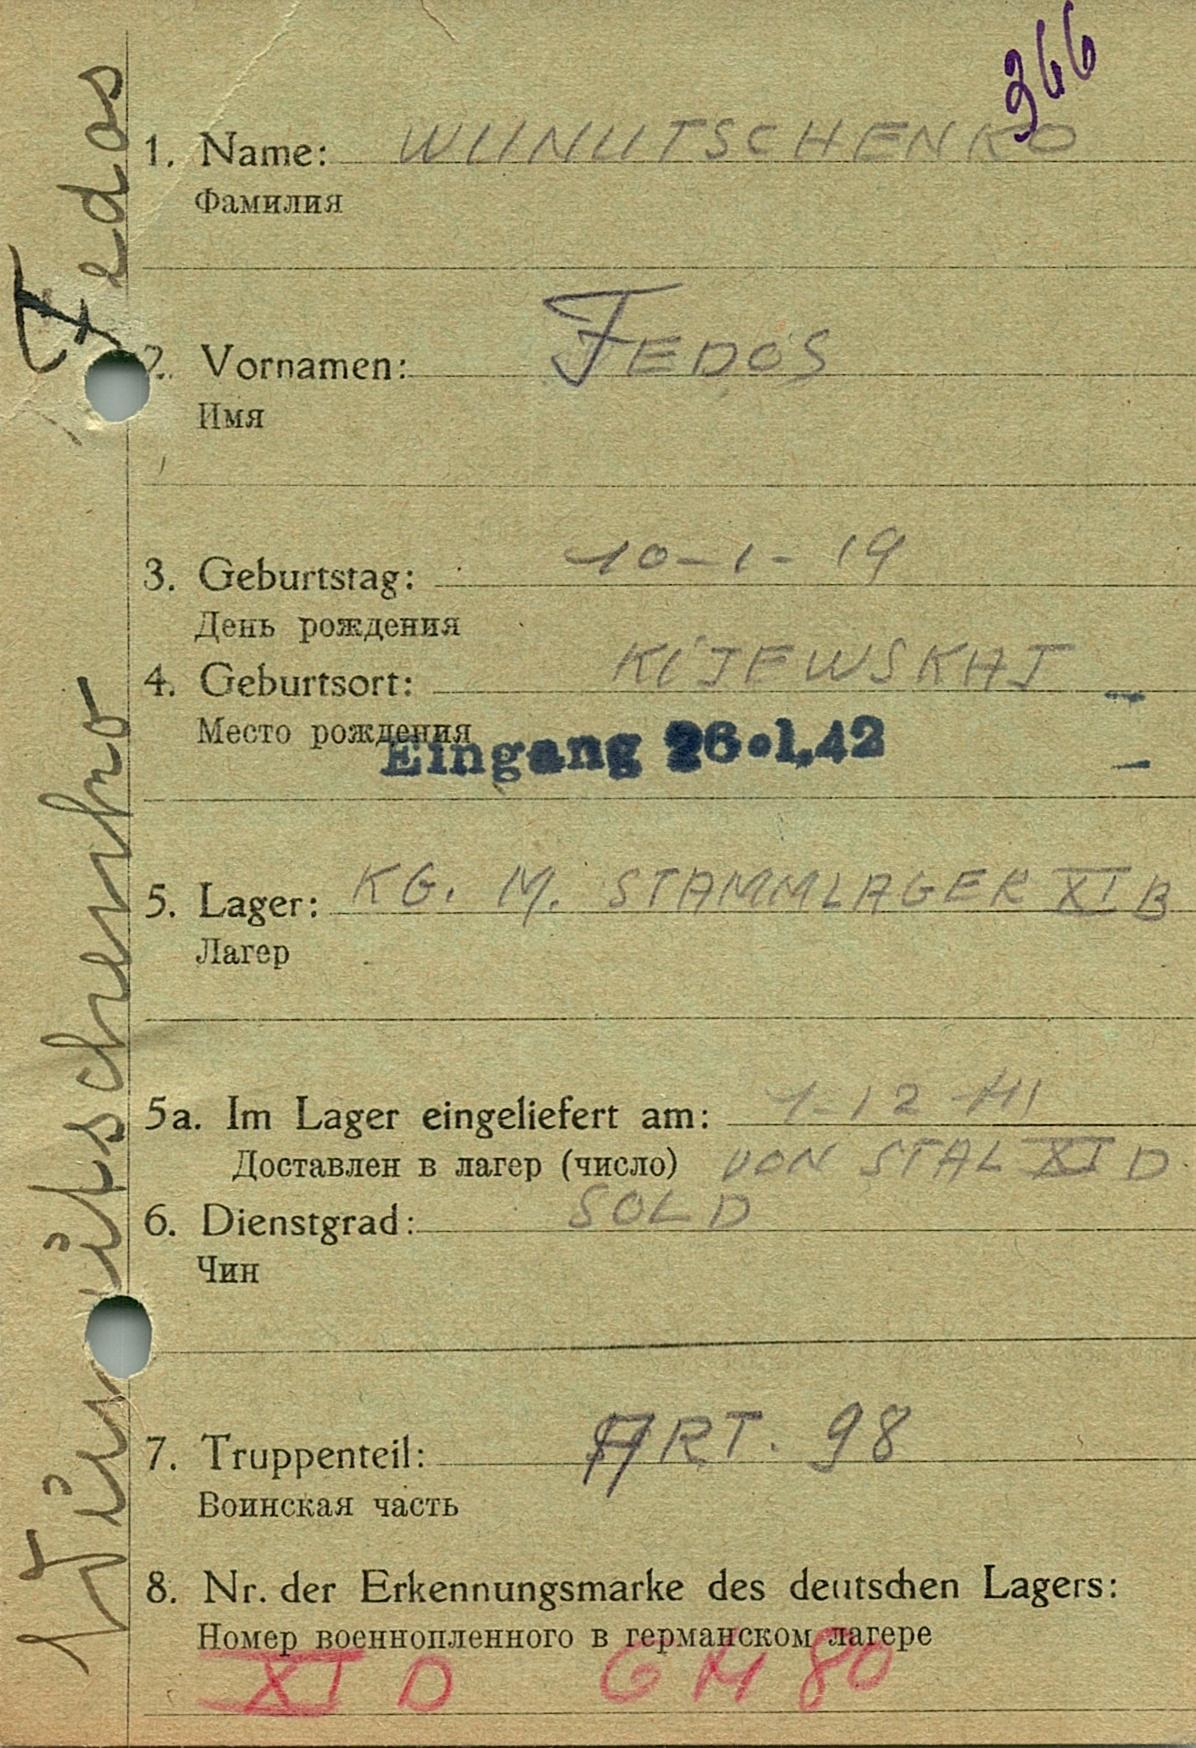 366
1. Name: WIINUTSCHENKO
Фамилия
2. Vornamen: FEDOS
Имя
3. Geburtstag: 10-1-19
День рождения
4. Geburtsort: KIJEWSKAJ
Место рождения
Eingang 26.1.42
5. Lager: KG. M. STAMMLAGER XI B
Лагер
5a. Im Lager eingeliefert am: 1-12-41
Доставлен в лагер (число) VON STAL XI D
6. Dienstgrad: SOLD
Чин
7. Truppenteil: ART. 98
Воинская часть
8. Nr. der Erkennungsmarke des deutschen Lagers:
Номер военнопленного в германском лагере
XI D 6480
Fedos